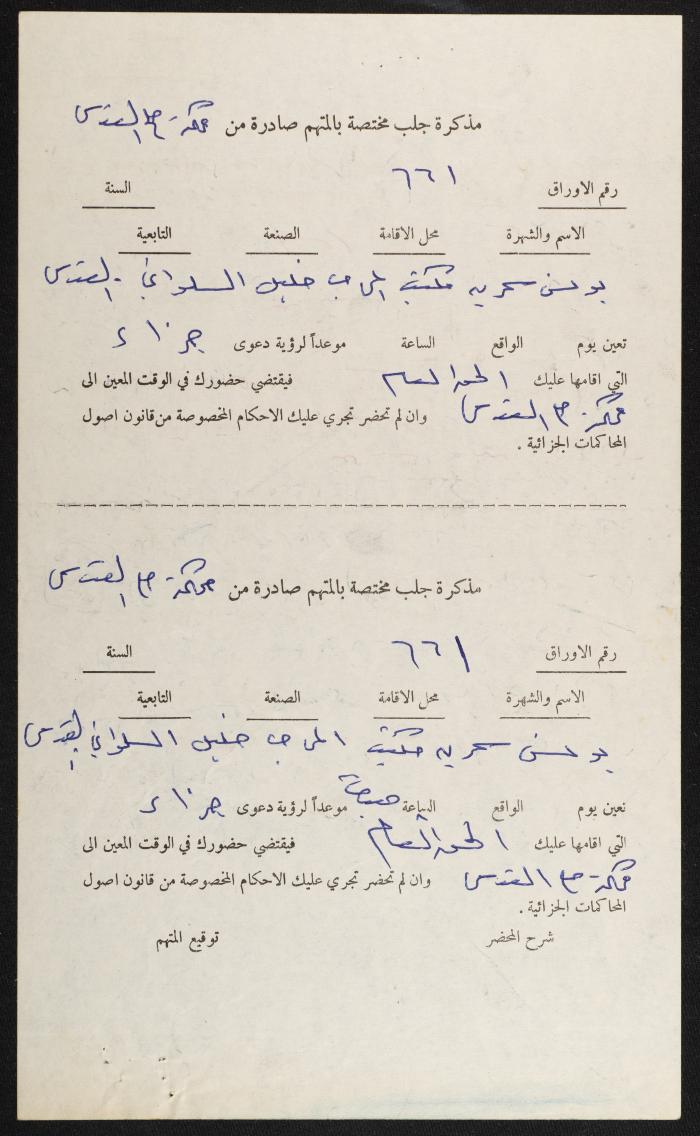 مذكرة جلب مختصة بالمتهم صادرة من محكمة صلح القدس
٦٦١
رقم الاوراق السنة
الاسم والشهرة محل الاقامة الصنعة التابعية
مكتب المحامي خليل السلواني القدس
تعين يوم الواقع الساعة موعداً لرؤية دعوى جزاء
التي اقامها عليك الحق العام فيقتضي حضورك في الوقت المعين الى
محكمة صلح القدس وان لم تحضر تجري عليك الاحكام المخصوصة من قانون اصول
المحاكمات الجزائية .
مذكرة جلب مختصة بالمتهم صادرة من محكمة صلح القدس
٦٦١
رقم الاوراق السنة
الاسم والشهرة محل الاقامة الصنعة التابعية
مكتب المحامي خليل السلواني القدس
تعين يوم الواقع الساعة موعداً لرؤية دعوى جزاء
التي اقامها عليك الحق العام فيقتضي حضورك في الوقت المعين الى
محكمة صلح القدس وان لم تحضر تجري عليك الاحكام المخصوصة من قانون اصول
المحاكمات الجزائية .
شرح المحضر توقيع المتهم